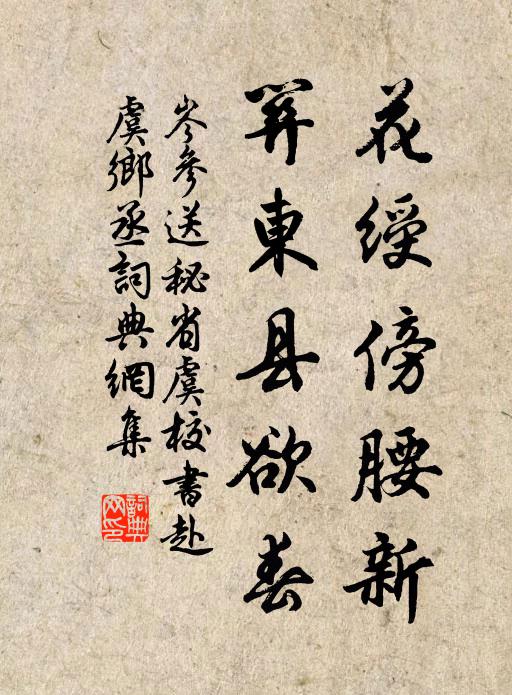 花綬傍腰新
關東县欲春
岑參送秘省虞校書赴
虞鄉丞詞典網集
詞典網印